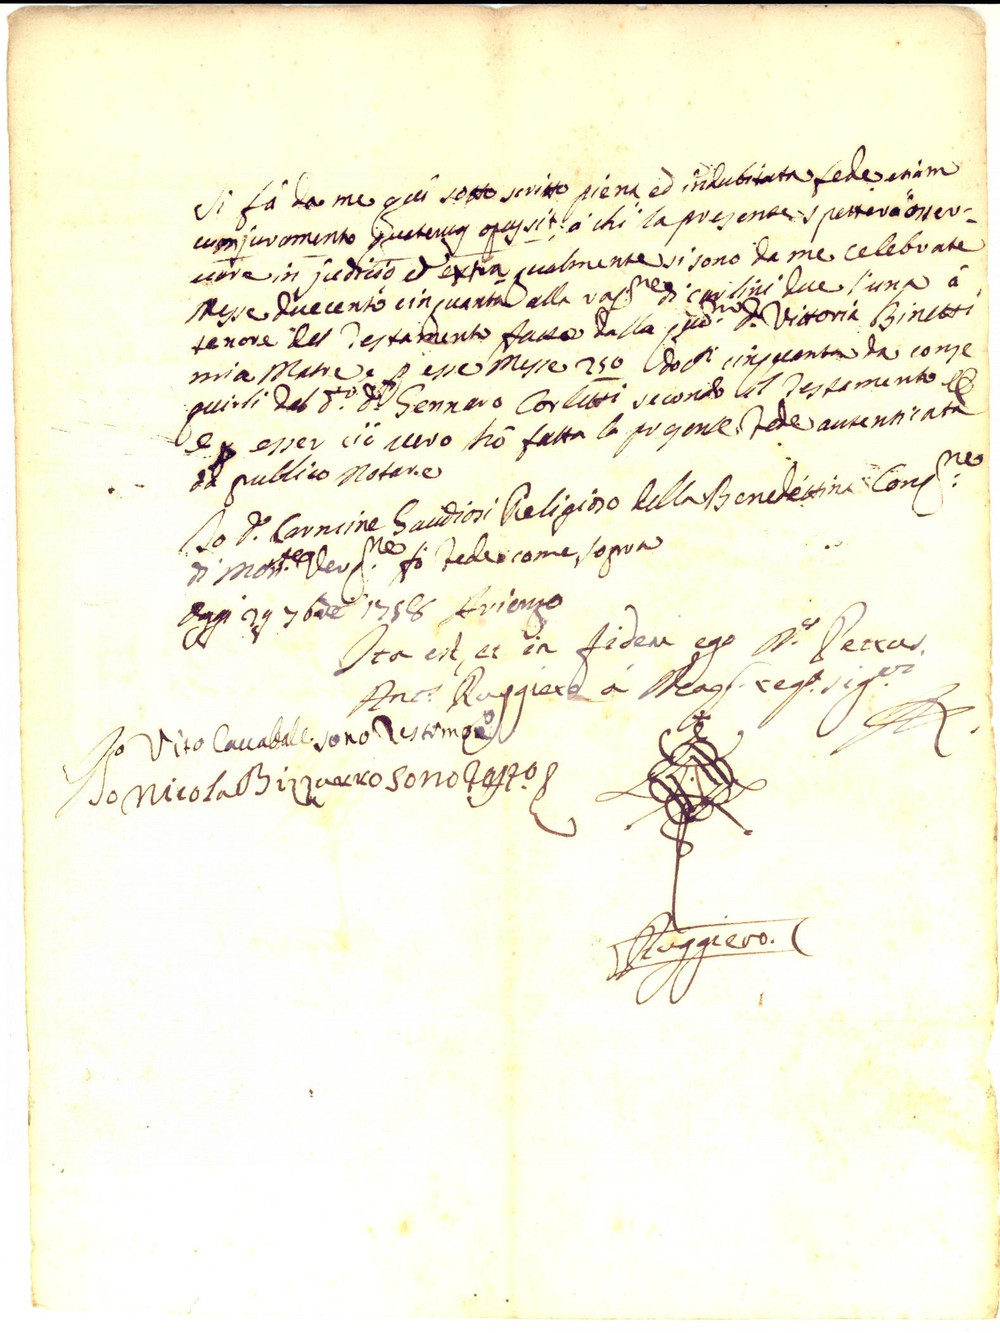 Si fà da me quì sotto scritto piena, ed indubitata fede etiam
cum juramento quatenus opus sit à chi la presente spetterà osser-
vare in judicio, ed extra qualmente si sono da me celebrate
Messe duecento cinquanta alla rag.ne di carlini due l'una à
tenore del Testamento fatto dalla qd.m D. Vittoria Binetti
mia Matre, e p esse Messe 250 doc.ti cinquanta da conse
guirli dal d.to D. Gennaro Corletti secondo il Testamento
e p esser ciò vero hò fatta la presente Fede autenticata
da publico Notare
Io D. Carmine Gaudiosi Religioso della Benedettina Cong.ne
di Monte Verg.ne fò Fede come sopra
Oggi 29 7bre 1758 Arienzo
Ita est, et in fidem ego N.r Petrus
Ant.s Ruggiero à Reag. reg. sig.vi
Io Vito Caccaball. sono Testimonio
Io Nicola Bizzarro sono Test.o
Ruggiero.